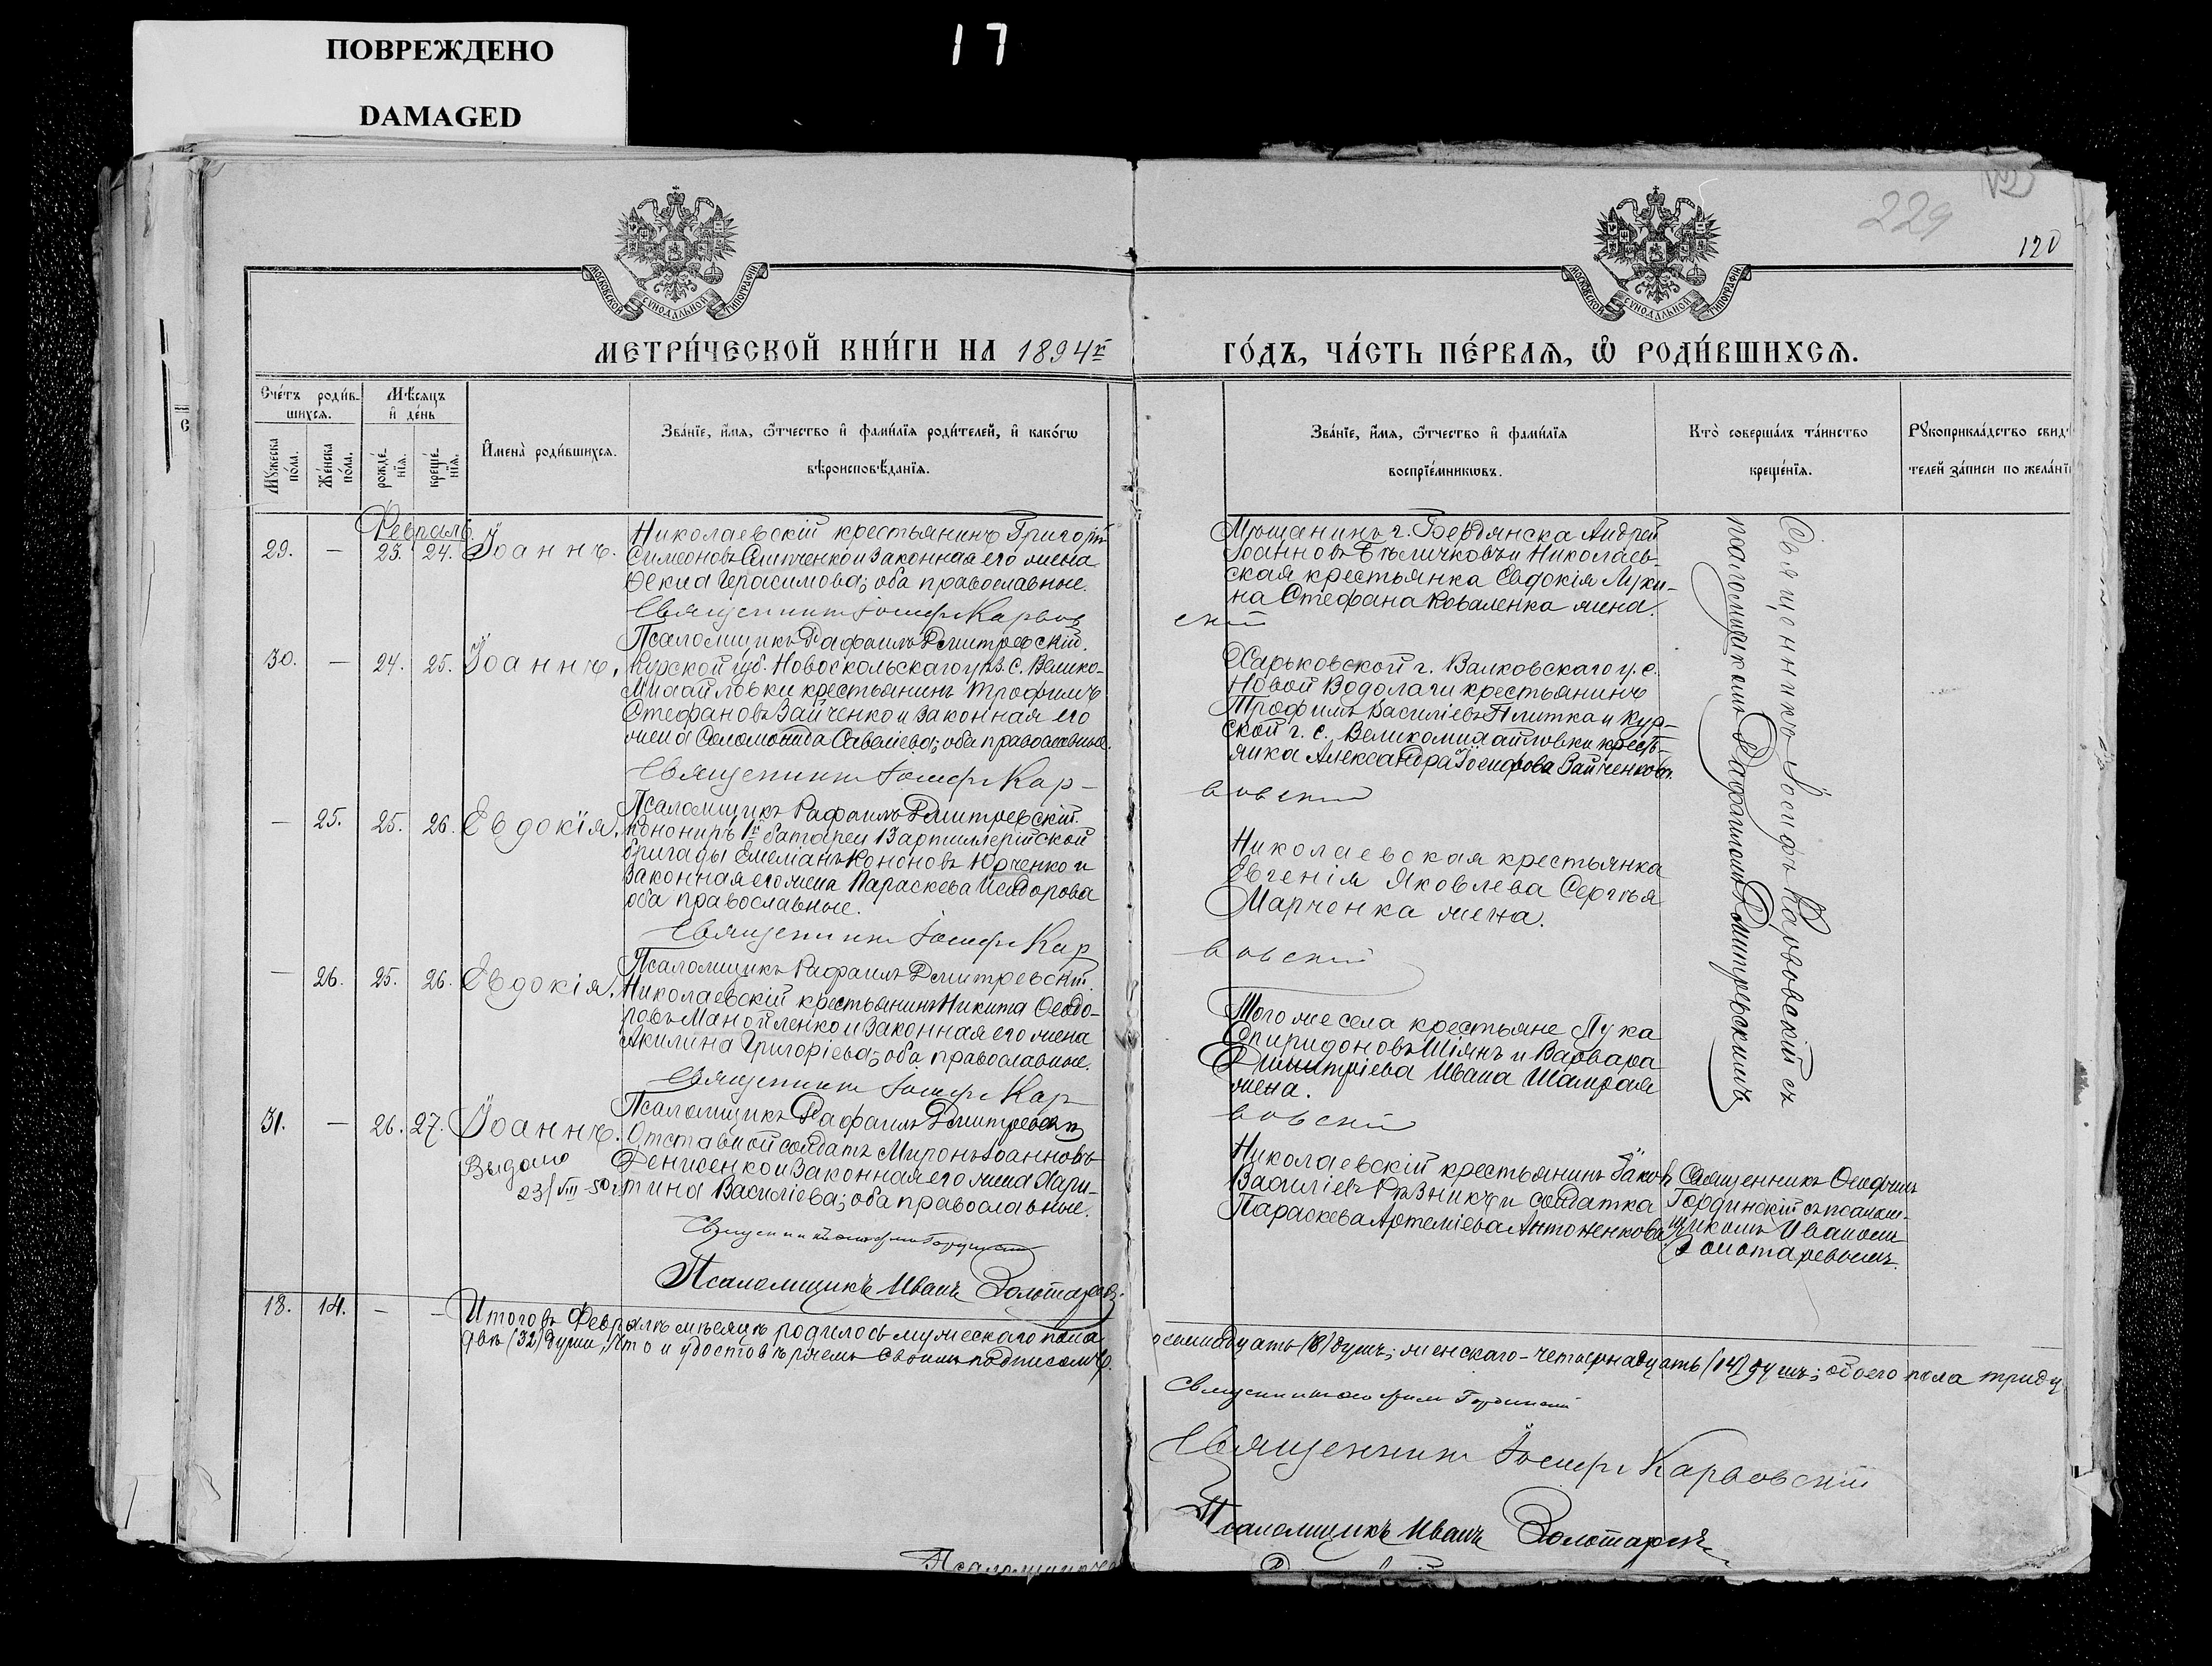 ПОВРЕЖДЕНО
DAMAGED
17
229
120
МОСКОВСКОЙ СУНОДАЛЬНОЙ ТИПОГРАФІИ
МОСКОВСКОЙ СУНОДАЛЬНОЙ ТИПОГРАФІИ
МЕТРИ́ЧЕСКОЙ КНИ́ГИ НА 1894 г.
ГО́ДЪ, ЧА́СТЬ ПЕ́РВАѦ, Ѽ РОДИ́ВШИХСѦ.
Сче́тъ роди́в-
шихсѧ.
Мꙋ́жеска по́ла.
Же́нска по́ла.
Мѣ́сѧцъ и҆ де́нь
рожде́-нїѧ.
креще́-нїѧ.
И҆мена̀ роди́вшихсѧ.
Зва́нїе, и҆́мѧ, ѻ҆́тчество и҆ фами́лїѧ роди́телей, и҆ како́гѡ
вѣроисповѣ́данїѧ.
Зва́нїе, и҆́мѧ, ѻ҆́тчество и҆ фами́лїѧ
воспрїе́мникѡвъ.
Кто̀ соверша́лъ та́инство
креще́нїѧ.
Рꙋкоприкла́дство свид
телей за́писи по жела́нї
Февраль
29. — 23. 24. Іоаннъ.
Николаевскій крестьянинъ Григорій
Симеоновъ и законная его жена
Ѳекла Герасимова; оба православные.
Священникъ Іосифъ Карвов
Псаломщикъ Рафаилъ Дмитревскій.
Мѣщанинъ г. Бердянска Андрей
Іоанновъ Бѣличковъ и Николаев-
ская крестьянка Евдокія Луки-
на Стефана Коваленка жена.
скій
30. — 24. 25. Іоаннъ.
Курской губ. Новоскольскаго уѣз. с. Велико-
Михайловки крестьянинъ Трофимъ
Стефановъ Зайченко и законная его
жена Соломонида Савелiева; оба православные.
Священникъ Іосифъ Кар-
Псаломщикъ Рафаилъ Дмитревскій.
Харьковской г. Валковскаго у. с.
Новой Водолаги крестьянинъ
Трофимъ Василіевъ Плитка и Кур-
ской г. с. Великомихайловки крест-
янка Александра Іосифова Зайченкова.
вовскій
— 25. 25. 26. Евдокія.
Конониръ 1й батареи 13 артиллерійской
бригады Емеліанъ Кононовъ Юрченко и
законная его жена Параскева Исидорова
оба православные.
Священникъ Іосифъ Кар
Псаломщикъ Рафаилъ Дмитревскій.
Николаевская крестьянка
Евгенія Яковлева Сергѣя
Марченка жена.
вовскій
— 26. 25. 26. Евдокія.
Николаевскій крестьянинъ Никита Ѳеодо-
ровъ Манойленко и законная его жена
Акилина Григоріева; оба православные.
Священникъ Іосифъ Кар
Псаломщикъ Рафаилъ Дмитревскій
Того же села крестьяне Лука
Спиридоновъ Шіянъ и Варвара
Димитріева Ивана Шамрая
жена.
вовскій
Священникъ Іосифъ Карвовскій съ
псаломщикомъ Рафаиломъ Дмитревскимъ
31. — 26. 27. Іоаннъ.
Выдано
23/VIII-50г
Отставной солдатъ Миронъ Іоанновъ
Денисенко и законная его жена Хари-
тина Василіева; оба православные.
Священникъ Гординскій
Псаломщикъ Иванъ Золотаревъ.
Николаевскій крестьянинъ Іаковъ
Василіевъ Рѣзникъ и солдатка
Параскева Артеміева Антоненкова.
Священникъ
Гординскій съ псалом-
щикомъ Иваномъ
Золотаревымъ.
18. 14. — —
Итого въ Февралѣ мѣсяцѣ родилось мужескаго пола
осьмнадцать (18) душъ; женскаго - четырнадцать (14) душъ; обоего пола тридц
двѣ (32) души, что и удостовѣряемъ своимъ подписомъ.
Священникъ Гординскій
Священникъ Іосифъ Карвовскій
Псаломщикъ Иванъ Золотаревъ
Псаломщикъ